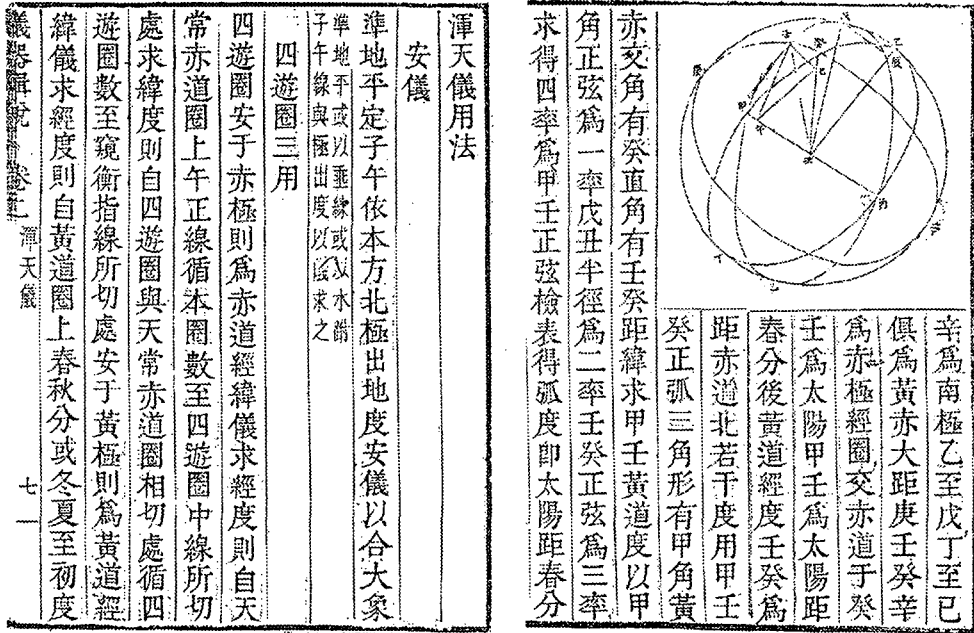 辛爲南極乙至戊丁至己
俱爲黃赤大距庚壬癸辛
爲赤極經圈交赤道于癸
壬爲太陽甲壬爲太陽距
春分後黃道經度壬癸爲
距赤道北若干度用甲壬
癸正弧三角形有甲角黃
赤交角有癸直角有壬癸距緯求甲壬黃道度以甲
角正弦爲一率戊丑半徑爲二率壬癸正弦爲三率
求得四率爲甲壬正弦檢表得弧度卽太陽距春分
渾天儀用法
安儀
準地平定子午依本方北極出地度安儀以合大象
準地平或以垂線或以水
子午線與極出度以法求之
四遊圈三用
四遊圈安于赤極則爲赤道經緯儀求經度則自天
常赤道圈上午正線循本圈數至四遊圈中線所切
處求緯度則自四遊圈與天常赤道圈相切處循四
遊圈數至窺衡指線所切處安于黃極則爲黃道經
緯儀求經度則自黃道圈上春秋分或冬夏至初度
儀器輯說 卷二 渾天儀 七